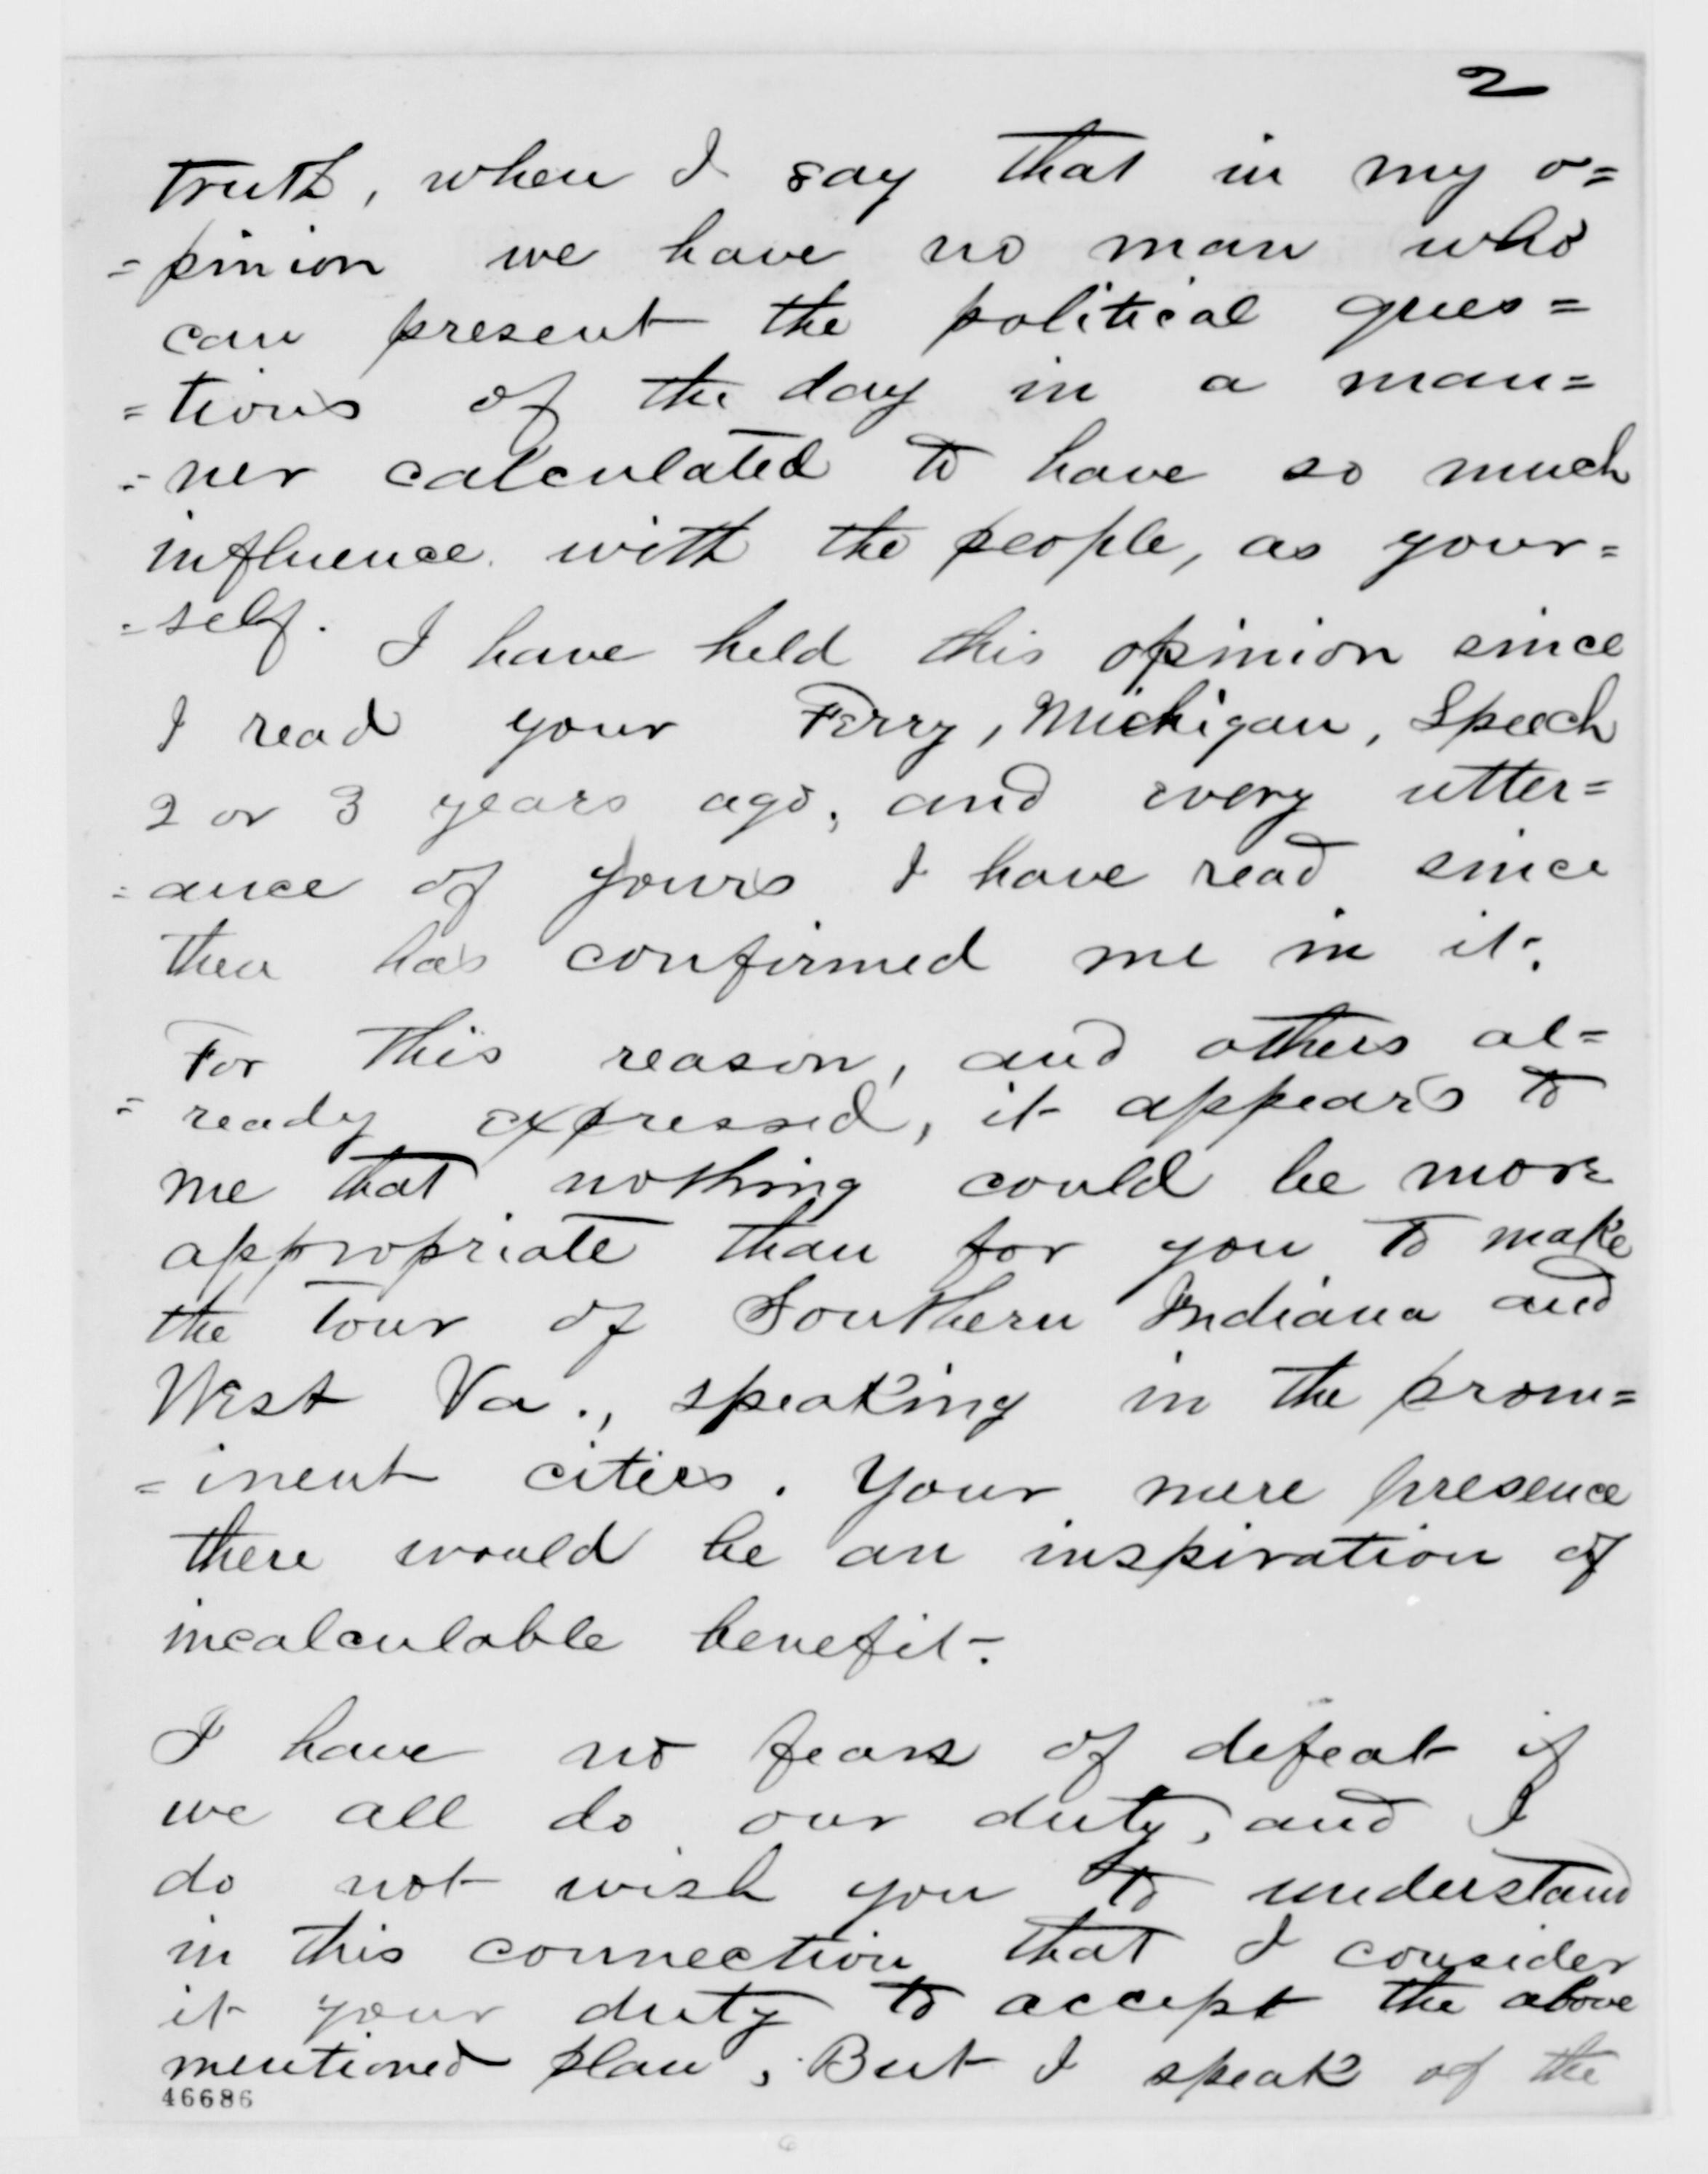 2
truth, when I say that in my o=
=pinion we have no man who
can present the political ques=
=tions of the day in a man=
=ner calculated to have so much
influence with the people, as your=
=self. I have held this opinion since
I read your Ferry, Michigan, Speech
2 or 3 years ago, and every utter=
=ance of yours I have read since
then has confirmed me in it.
For this reason, and others al=
=ready expressed, it appears to
me that nothing could be more
appropriate than for you to make
the tour of Southern Indiana and
West Va., speaking in the prom=
=inent cities. Your mere presence
there would be an inspiration of
incalculable benefit.
I have no fears of defeat if
we all do our duty, and I
do not wish you to understand
in this connection that I consider
it your duty to accept the above
mentioned plan, But I speak of the
46686